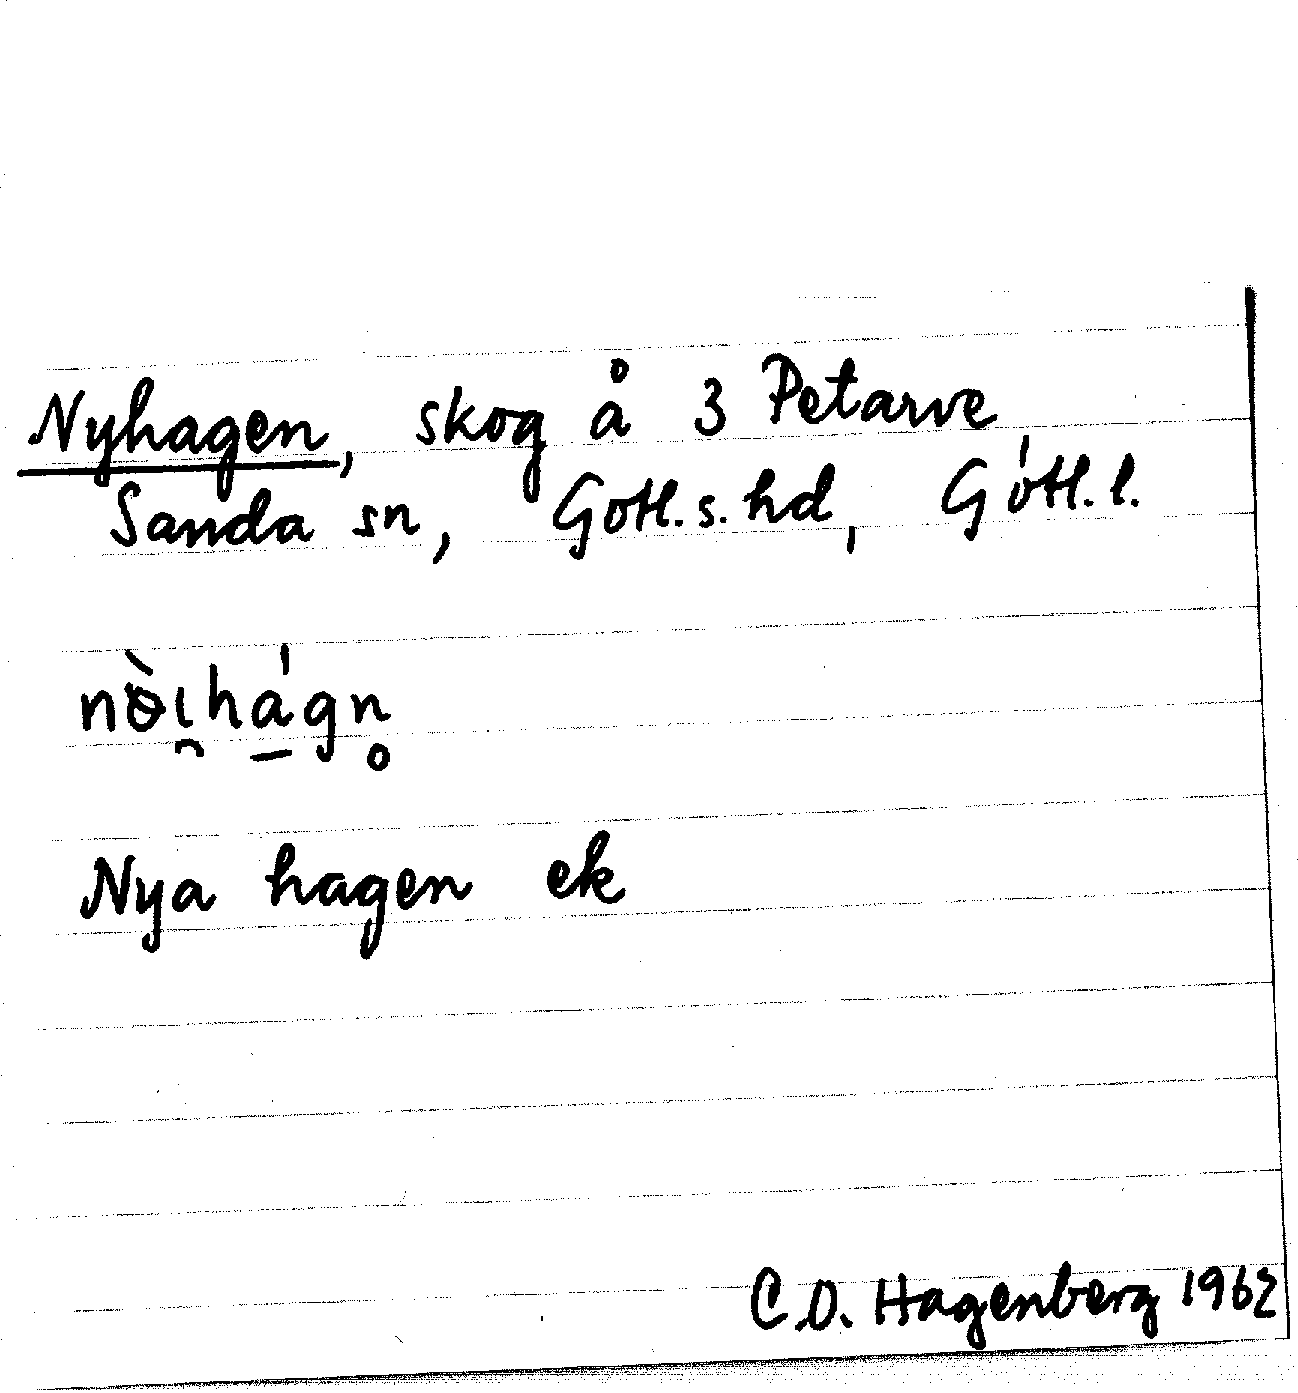 Nyhagen, skog å 3 Petarve
Sanda sn, Gotl. s. hd, Gotl. l.
nɵ̀i̯há̱gn̥
Nya hagen ek
C.O. Hagenberg 1962